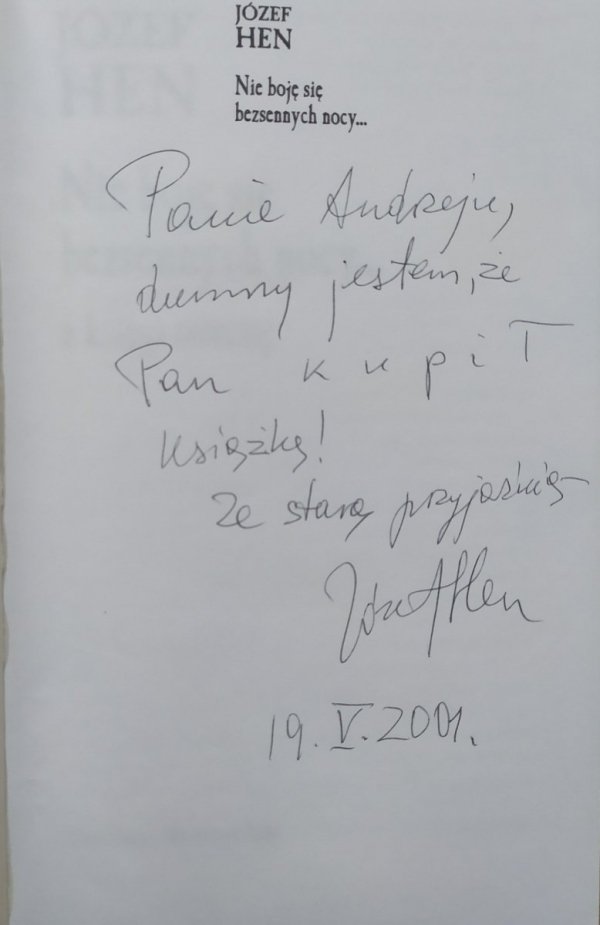 JÓZEF
HEN
Nie boję się
bezsennych nocy...
Panie Andrzeju,
dumny jestem, że
Pan k u p i ł
książkę!
Ze starą przyjaźnią
Józef Hen
19. V. 2001.